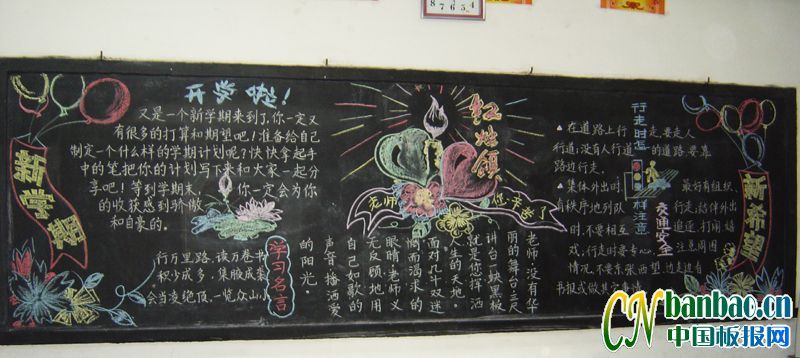 8 7 6 5 4
新学期
开学啦！
又是一个新学期来到了,你一定又
有很多的打算和期望吧！准备给自己
制定一个什么样的学期计划呢？快快拿起手
中的笔把你的计划写下来和大家一起分
享吧！等到学期末,你一定会为你
的收获感到骄傲
和自豪的。
学习名言
行万里路,读万卷书
积少成多,集腋成裘
会当凌绝顶,一览众山小
红烛颂
老师 您辛苦了
老师,没有华
丽的舞台,三尺
讲台一块黑板
就是您挥洒
人生的天地。
面对几十双迷
惘而渴求的
眼睛,老师义
无反顾地用
自己如歌的
声音播洒爱
的阳光。
行走时怎
样注意
交通安全
在道路上行走,要走人
行道；没有人行道的道路,要靠
路边行走。
集体外出时,最好有组织、
有秩序地列队行走；结伴外出
时,不要相互追逐、打闹、嬉
戏；行走时要专心,注意周围
情况,不要东张西望、边走边看
书报或做其它事情。
新希望
CNbanbao.cn
中国板报网